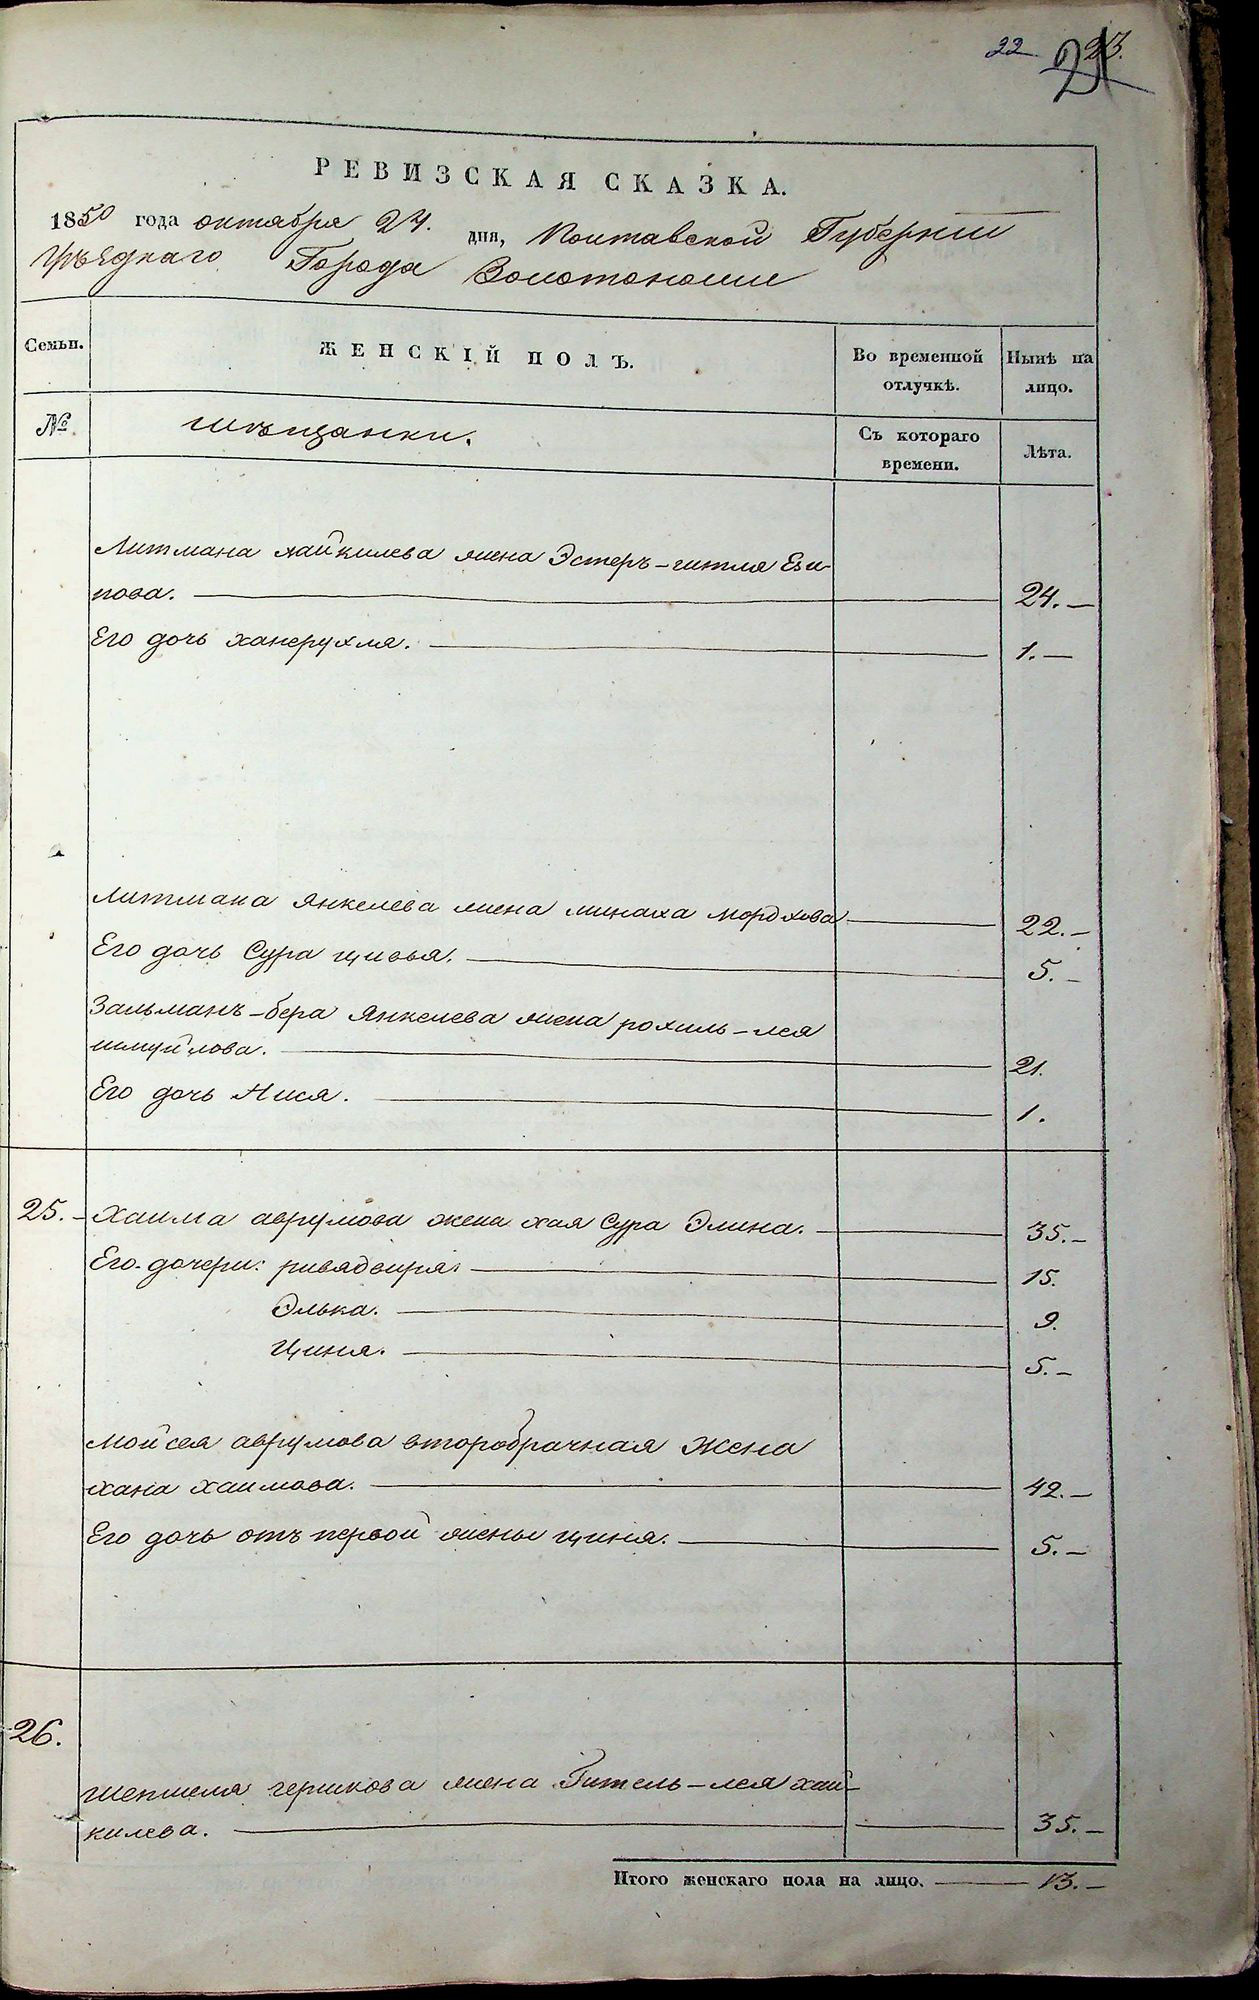 22 23.
21
РЕВИЗСКАЯ СКАЗКА.
1850 года октября 24. дня, Полтавской Губернии
Уѣзднаго Города Золотоноши
Семьи. ЖЕНСКІЙ ПОЛЪ. Во временной отлучкѣ. Нынѣ на лицо.
№ мѣщанки. Съ котораго времени. Лѣта.
Литмана хайкилева жена Эстеръ-гитля Еси-
пова. 24.-
Его дочь ханерухля. 1.-
Литмана Янкелева жена минаха мордхова 22.-
Его дочь Сура цивья. 5.-
Зальманъ-бера Янкелева жена рохиль-лея
шмуйлова. 21.
Его дочь Нися. 1.
25.- Хаима аврумова жена хая Сура Элина. 35.-
Его дочери: ривядвиря. 15.
Элька. 9.
Циня. 5.-
Мойсея аврумова второбрачная жена
хана хаимова. 42.-
Его дочь отъ первой жены циня. 5.-
26.
гершкова жена Гитель-лея хай-
килева. 35.-
Итого женскаго пола на лицо. 13.-